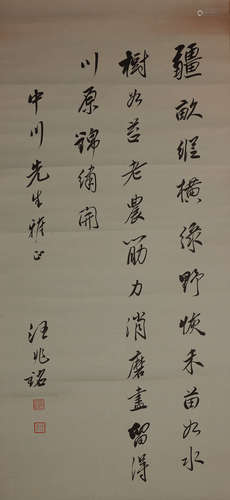 疆畝縱橫綠野恢禾苗如水
樹如苔老農筋力消磨盡留得
川原錦繡開
中川先生雅正
汪兆銘